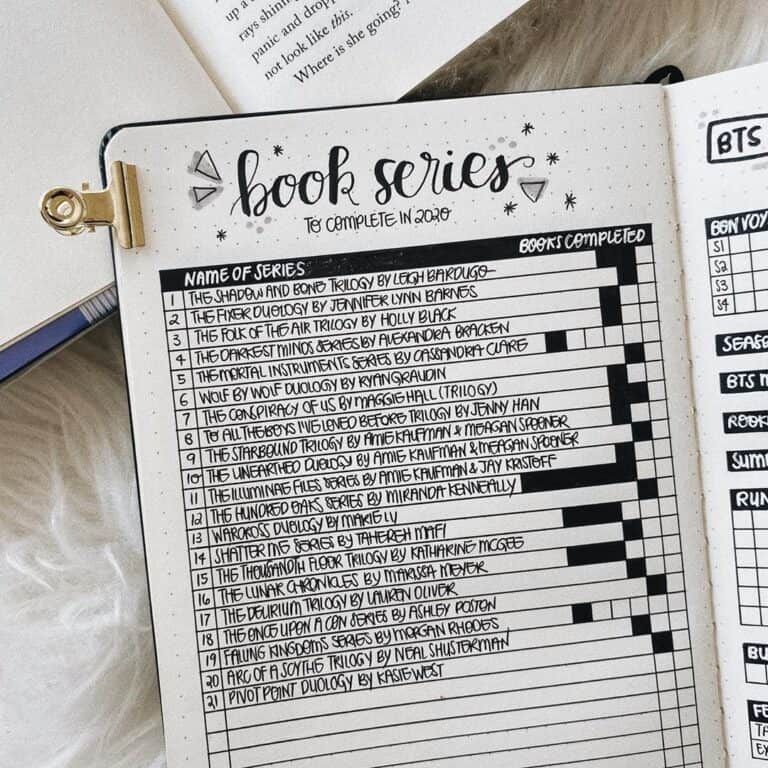 up a
rays shinin
panic and dropp
not look like this.
Where is she going?
book series
TO COMPLETE IN 2020
NAME OF SERIES BOOKS COMPLETED
1 THE SHADOW AND BONE TRILOGY BY LEIGH BARDUGO
2 THE FIXER DUOLOGY BY JENNIFER LYNN BARNES
3 THE FOLK OF THE AIR TRILOGY BY HOLLY BLACK
4 THE DARKEST MINDS SERIES BY ALEXANDRA BRACKEN
5 THE MORTAL INSTRUMENTS SERIES BY CASSANDRA CLARE
6 WOLF BY WOLF DUOLOGY BY RYAN GRAUDIN
7 THE CONSPIRACY OF US BY MAGGIE HALL (TRILOGY)
8 TO ALL THE BOYS I'VE LOVED BEFORE TRILOGY BY JENNY HAN
9 THE STARBOUND TRILOGY BY AMIE KAUFMAN & MEAGAN SPOONER
10 THE UNEARTHED DUOLOGY BY AMIE KAUFMAN & MEAGAN SPOONER
11 THE ILLUMINAE FILES SERIES BY AMIE KAUFMAN & JAY KRISTOFF
12 THE HUNDRED OAKS SERIES BY MIRANDA KENNEALLY
13 WARCROSS DUOLOGY BY MARIE LU
14 SHATTER ME SERIES BY TAHEREH MAFI
15 THE THOUSANDTH FLOOR TRILOGY BY KATHARINE MCGEE
16 THE LUNAR CHRONICLES BY MARISSA MEYER
17 THE DELIRIUM TRILOGY BY LAUREN OLIVER
18 THE ONCE UPON A CON SERIES BY ASHLEY POSTON
19 FALLING KINGDOMS SERIES BY MORGAN RHODES
20 ARC OF A SCYTHE TRILOGY BY NEAL SHUSTERMAN
21 PIVOT POINT DUOLOGY BY KASIE WEST
BTS
BON VOY
S1
S2
S3
S4
SEASO
BTS M
ROOKI
SUMM
RUN
BU
FE
TA
EX